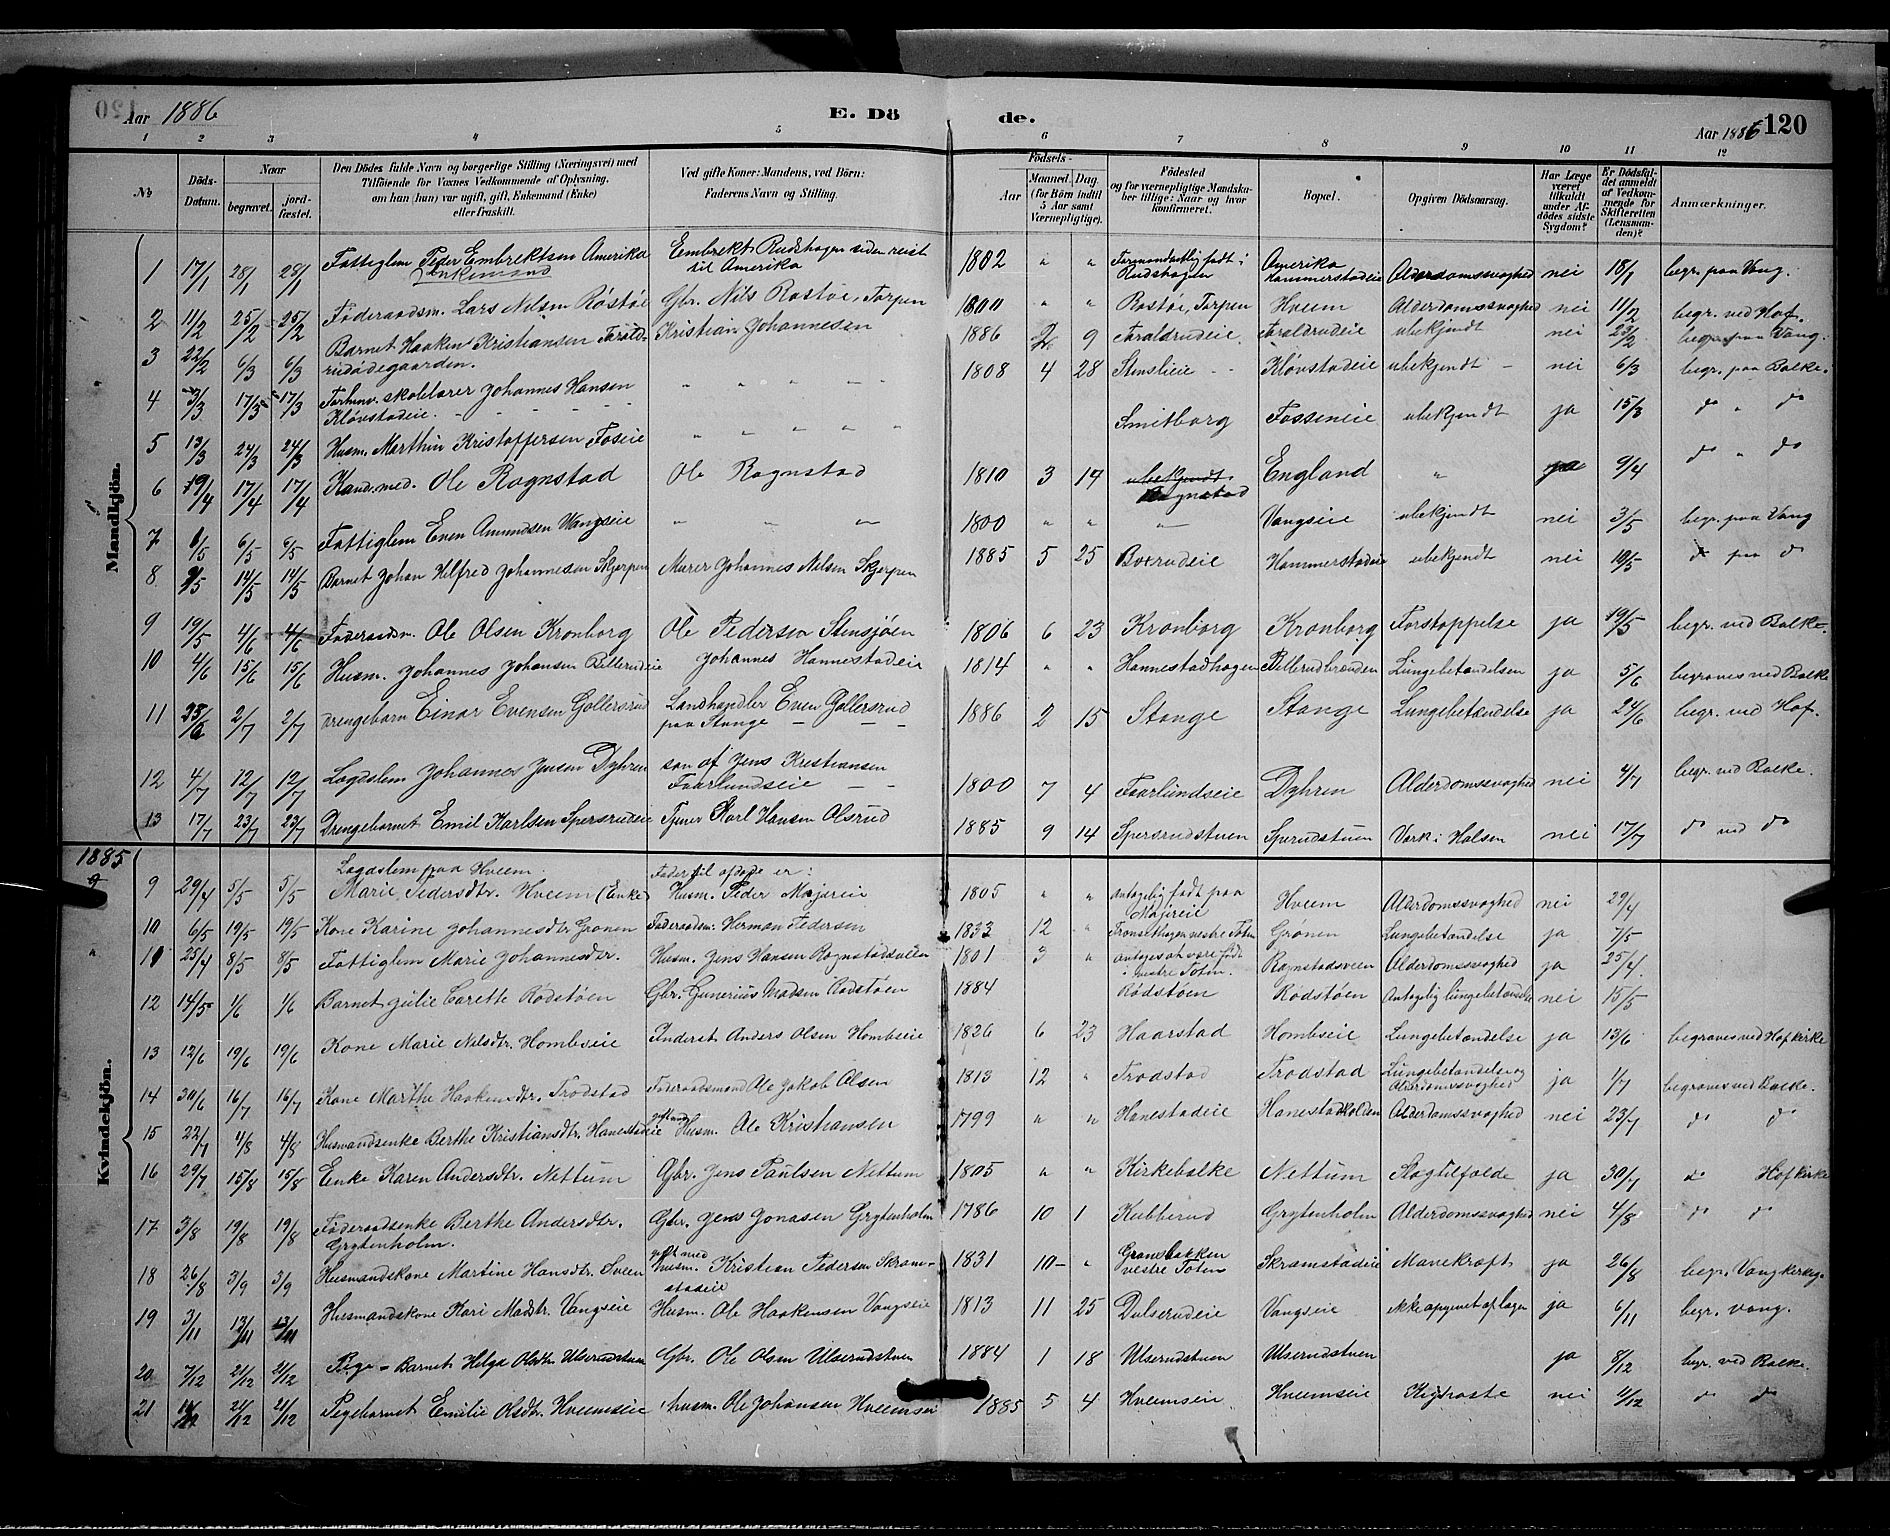 Aar 1886 E. Dö de. Aar 1886 120
1 2 3 4 5 6 7 8 9 10 11 12
No
Döds-Datum.
Naar
begravet.
jord-fæstet.
Den Dödes fulde Navn og borgerlige Stilling (Næringsvei) med
Tilföiende for Voxnes Vedkommende af Oplysning,
om han (hun) var ugift, gift, Enkemand (Enke)
eller fraskilt.
Ved gifte Koner: Mandens, ved Börn:
Faderens Navn og Stilling.
Födsels-
Aar
Maaned. Dag.
(for Börn indtil
5 Aar samt
Værnepligtige).
Födested
og for værnepligtige Mandska-
ber tillige: Naar og hvor
konfirmeret.
Bopæl.
Opgiven Dödsaarsag.
Har Læge
været
tilkaldt
under Af-
dödes sidste
Sygdom?
Er Dödsfal-
det anmeldt
af Vedkom-
mende for
Skifteretten
(Lensman-
den)?
Anmærkninger.
Mandkjön.
1 17/1 28/1 28/1 Fattiglem Peder Embrektsen Amerika Enkemand Embrekt Rudshagen siden reist til Amerika 1802 " " Formandentlig født i Rudshagen Amerika Hammerstadeie Alderdomssvaghed nei 18/1 begr. paa Vang.
2 11/2 25/2 25/2 Føderaadsm. Lars Nilsen Røstøe Gbr. Nils Rostøe, Torpen 1800 " " Rostøe, Torpen Hveem Alderdomssvaghed nei 11/2 begr. ved Hof.
3 22/2 6/3 6/3 Barnet Haaken Kristiansen Forald- rudødegaarden. Kristian Johannesen 1886 2 9 Foraldrudeie. Foraldrudeie ubekjendt nei 23/2 begr. paa Vang.
4 3/3 17/3 17/3 Forhenv. skolelærer Johannes Hansen Kløvstadeie. " " " " " 1808 4 28 Stenslieie Kløvstadeie ubekjendt nei 6/3 begr. paa Balke.
5 13/3 24/3 24/3 Husm. Marthin Kristoffersen Foseie " " " " " Smitborg Fosseneie ubekjendt ja 15/3 do " do
6 19/4 17/4 17/4 Kand. med. Ole Rognstad Ole Rognstad 1810 3 14 ubekjendt Rognstad England " ja 9/4 do " do
7 1/5 6/5 6/5 Fattiglem Even Amundsen Vangseie " " " 1800 " " " Vangseie ubekjendt nei 3/5 begr. paa Vang
8 9/5 14/5 14/5 Barnet Johan Hilfred Johannesen Skjerpen Murer Johannes Nilsen Skjerpen 1885 5 25 Boxrudeie Hammerstadeie ubekjendt nei 10/5 do paa do
9 19/5 4/6 4/6 Føderaadsm. Ole Olsen Kronborg Ole Pedersen Stensjøen 1806 6 23 Kronborg Kronborg Forstoppelse ja 19/5 begr. ved Balke.
10 4/6 15/6 15/6 Husm. Johannes Johansen Billerudeie Johannes Hannestadeie 1814 " " Hannestadhagen Billerudbraaden Lungebetændelsen ja 5/6 begraves ved Balke
11 23/6 2/7 2/7 Drengebarn Einar Evensen Gollersrud Landhandler Even Gollersrud paa Stange 1886 2 15 Stange Stange Lungebetændelse ja 24/6 begr. ved Hof.
12 4/7 12/7 12/7 Lægdslem Johannes Jensen Dyhren søn af Jens Kristiansen Faarlundseie 1800 7 4 Faarlundseie Dyhren Alderdomssvaghed nei 4/7 begr. ved Balke.
13 17/7 23/7 23/7 Drengebarnet Emil Karlsen Spersrudeie Tjener Karl Hansen Olsrud 1885 9 14 Spersrudstuen Sperudstuen Værk i Halsen nei 17/7 do ved do
1885
Kvindekjön.
9 29/4 5/5 5/5 Lægdslem paa Hveem. Marie Pedersdtr. Hveem (Enke) Fader til afdøde er: Husm. Peder Majereie 1805 " " Antagelig født paa Majreie Hveem Alderdomssvaghed nei 29/4
10 6/5 19/5 19/5 Kone Karine Johannesdtr Grønen Føderaadsm. Herman Pedersen 1833 12 " vestre Toten Grønen Lungebetændelse ja 7/5
11 25/4 8/5 8/5 Fattiglem Marie Johannesdtr. Husm. Jens Hansen Rognstadsveen 1801 3 " Antages at være født i vestre Toten. Rognstadsveen Alderdomssvaghed ja 25/4.
12 14/5 1/6 1/6 Barnet Julie Carette Rødstøen Gbr. Gunerius Madsen Rødstøen 1884 Rødstøen Rødstøen Antagelig lungebetændelse nei 15/5
13 12/6 19/6 19/6 Kone Marie Nilsdtr. Hombseie Inderst Anders Olsen Hombseie 1826 6 23 Haarstad Hombseie Lungebetændelse ja 13/6 begraves ved Hof Kirke
14 30/6 16/7 16/7 Kone Marthe Haakensdtr. Trodstad Føderaadsmand Ole Jakob Olsen 1813 12 " Trodstad Trodstad Lungebetændelse og Alderdomssvaghed ja 1/7 begraves ved Balke.
15 22/7 4/8 4/8 Husmandsenke Berthe Kristiansdtr. Hanestadeie gift med Husm. Ole Kristiansen 1799 " " Hanestadeie Hanestadkolden Alderdomssvaghed nei 23/7 do do
16 29/7 15/8 15/8 Enke Karen Andersdtr. Nettum Gbr. Jens Paulsen Nettum 1805 " " Kirkebalke Nettum Slagtilfælde ja 30/7 do Hof Kirke
17 3/8 19/8 19/8 Føderaadsenke Berthe Andersdtr. Grytenholm. Gbr. Jens Jonasen Grytenholm 1786 10 1 Kubberud Grytenholm Alderdomssvaghed nei 4/8 do do
18 26/8 3/9 3/9 Husmandskone Martine Hansdtr. Sveen gift med husm. Kristian Pedersen Skram- stadeie 1831 10 " Gransbakken vestre Toten Skramstadeie Mavekræft ja 26/8 begr. Vang kirkeg.
19 3/11 13/11 13/11 Husmandskone Kari Madtr. Vangseie Husm. Ole Haakensen Vangseie 1813 11 25 Dulserudeie Vangseie ikke opgivet af lægen ja 6/11 begr. Vang.
20 7/12 21/12 21/12 Pige-Barnet Helga Olsdtr. Ulserudstuen Gbr. Ole Olsen Ulserudstuen 1884 1 18 Ulserudstuen Ulserudstuen ja 8/12 begr. ved Balke.
21 24/12 21/12 Pigebarnet Emilie Olsdtr. Hveemseie husm. Ole Johansen Hveemsei 1885 5 4 Hveemseie Hveemseie Kighoste nei 4/12 do do